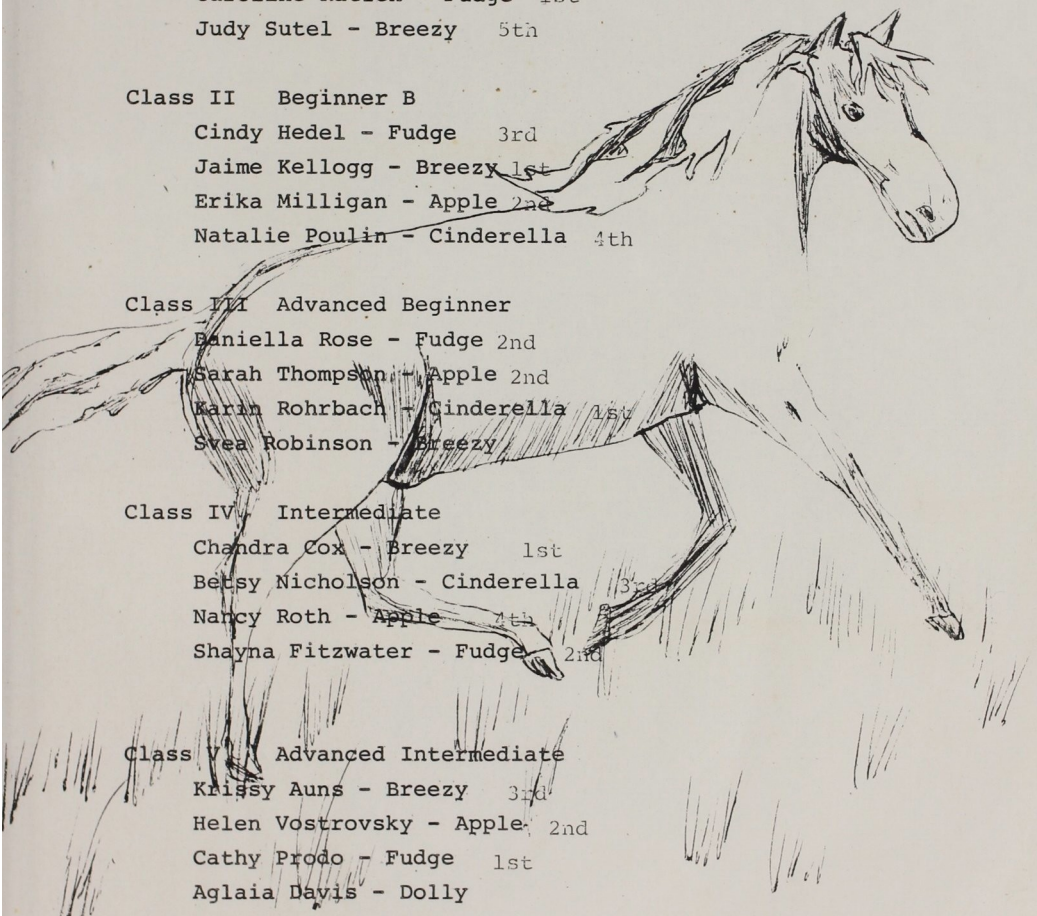 Judy Sutel - Breezy 5th
Class II Beginner B
Cindy Hedel - Fudge 3rd
Jaime Kellogg - Breezy 1st
Erika Milligan - Apple 2nd
Natalie Poulin - Cinderella 4th
Class III Advanced Beginner
Daniella Rose - Fudge 2nd
Sarah Thompson - Apple 2nd
Karin Rohrbach - Cinderella 1st
Svea Robinson - Breezy
Class IV Intermediate
Chandra Cox - Breezy 1st
Betsy Nicholson - Cinderella 3rd
Nancy Roth - Apple 4th
Shayna Fitzwater - Fudge 2nd
Class V Advanced Intermediate
Krissy Auns - Breezy 3rd
Helen Vostrovsky - Apple 2nd
Cathy Prodo - Fudge 1st
Aglaia Davis - Dolly